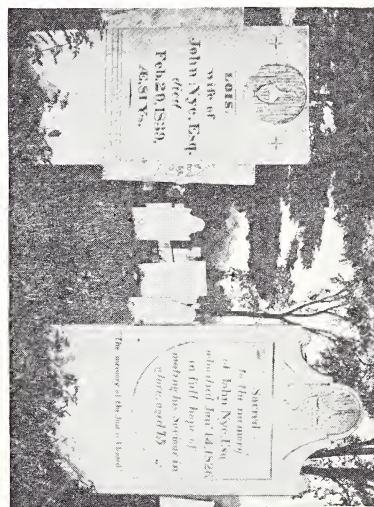 LOIS,
wife of
John Nye, Esq.
died
Feb. 20, 1839,
Æ. 81 Ys.
Sacred
to the memory
of John Nye, Esq
who died Jan 14, 1826,
in full hope of
meeting his Saviour in
glory, aged 75
The memory of the Just is blessed